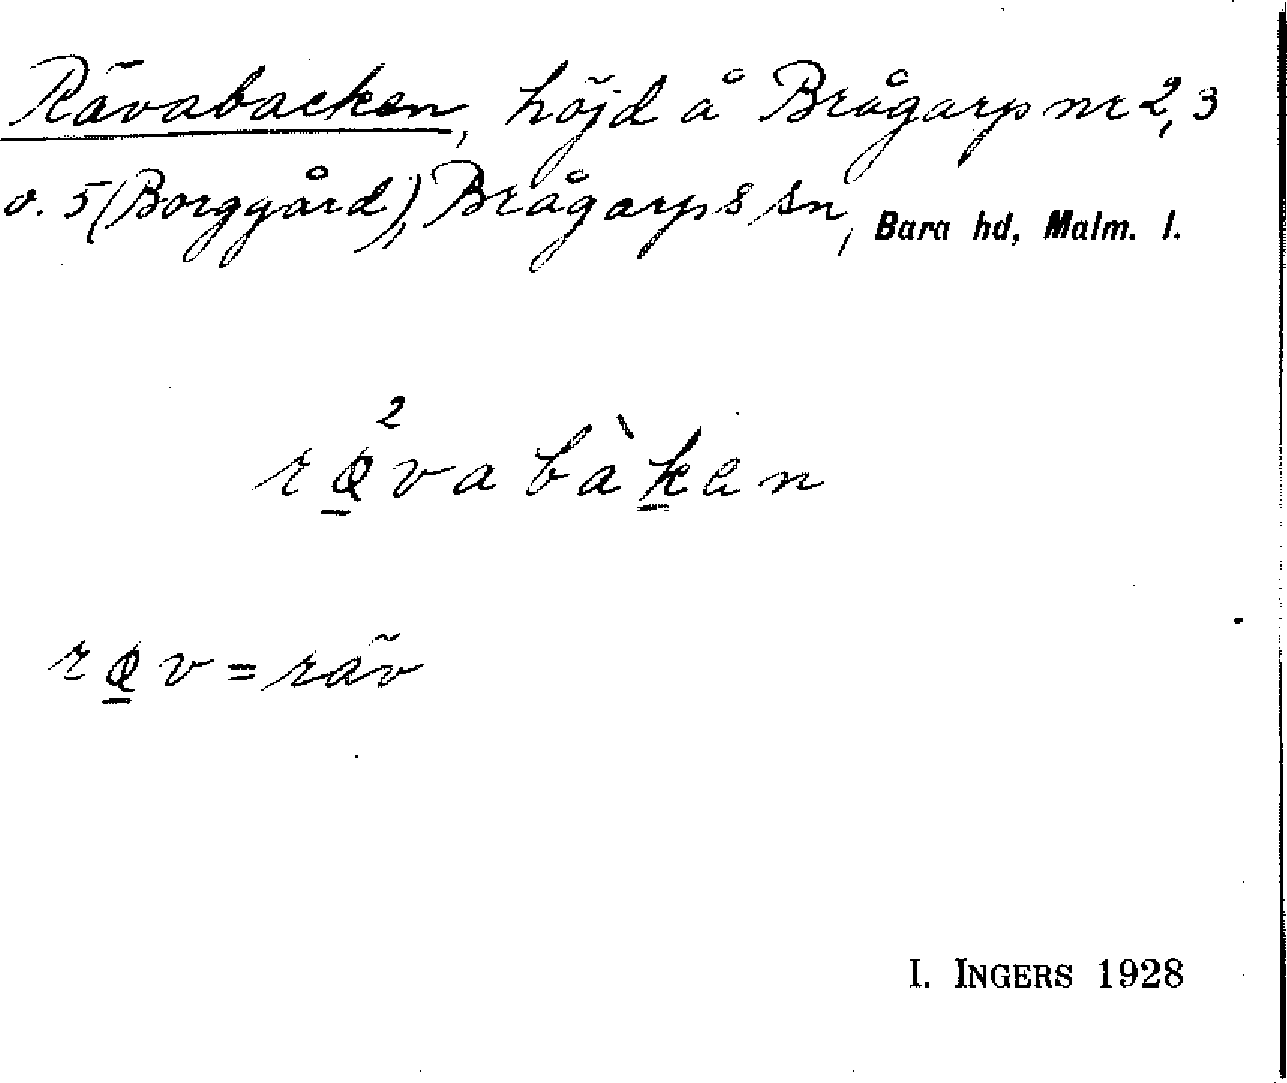 Rävabacken, höjd å Brågarp nr 2, 3
o. 5 (Borggård), Brågarps sn, Bara hd, Malm. l.
rø̱²vabàḵen
rø̱v = räv
I. INGERS 1928